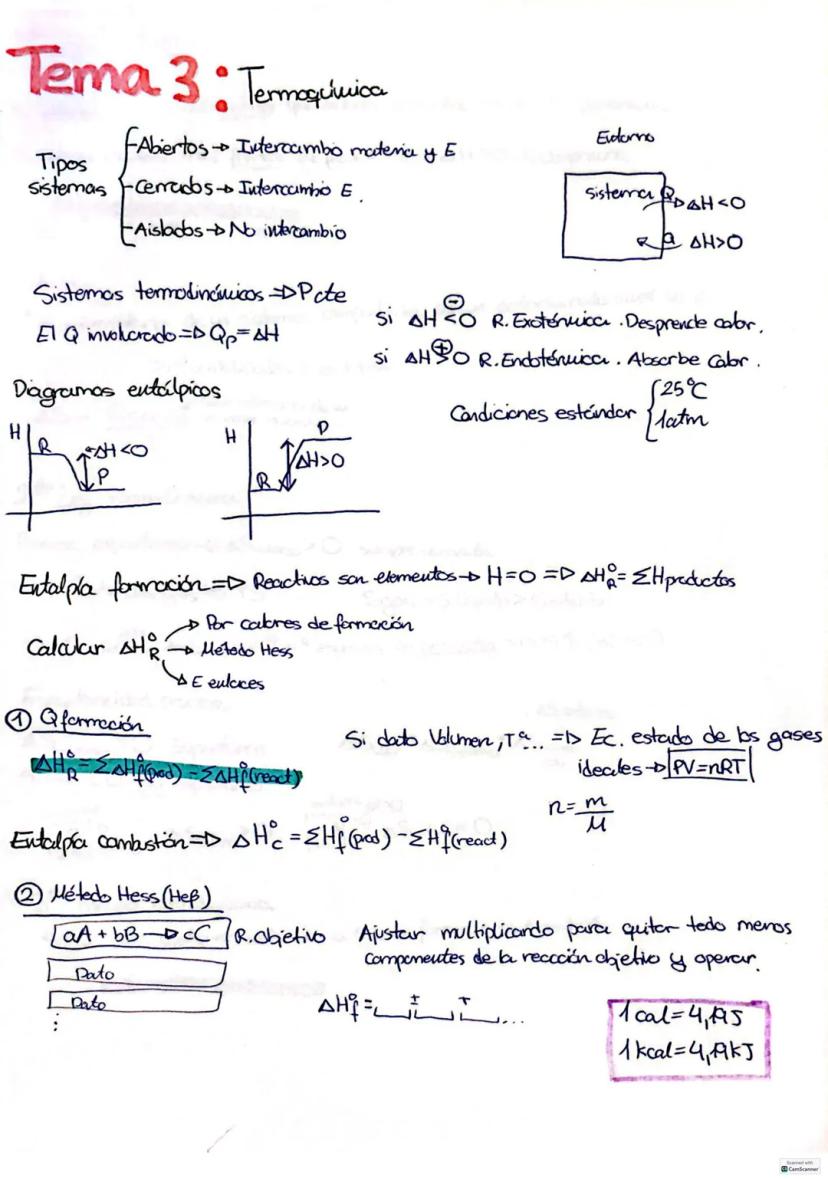 Tema 3: Termoquímica
Tipos sistemas
Abiertos → Intercambio materia y E
Cerrados → Intercambio E.
Aislados → No intercambio
Entorno
Sistema Q
ΔH<0
Q ΔH>0
Sistemas termodinámicos ⇒ P cte
El Q involucrado ⇒ Qp = ΔH
si ΔH <0 R. Exotérmica. Desprende calor.
⊖
si ΔH >0 R. Endotérmica. Absorbe calor.
⊕
Diagramas entálpicos
H R ΔH<0 P
H R ΔH>0 P
Condiciones estándar { 25°C
1atm
Entalpía formación ⇒ Reactivos son elementos → H=0 ⇒ ΔH°R = ΣHproductos
Calcular ΔH°R
→ Por calores de formación
→ Método Hess
→ E enlaces
① Q formación
ΔH°R = ΣΔH°f(prod) - ΣΔH°f(react)
Si dato Volumen, Tª... ⇒ Ec. estado de los gases
ideales → PV=nRT
n = m/M
Entalpía combustión ⇒ ΔH°c = ΣH°f(prod) - ΣH°f(react)
② Método Hess (Heβ)
aA + bB → cC R. Objetivo
Dato
Dato
⋮
Ajustar multiplicando para quitar todo menos
componentes de la reacción objetivo y operar.
ΔH°f = ± ...
1 cal = 4,19J
1 kcal = 4,19kJ
Scanned with
CamScanner